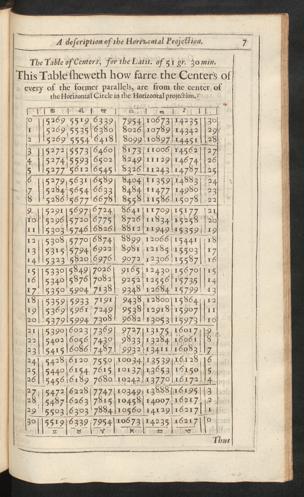 A description of the Horizontal Projection. 7
The Table of Centers, for the Latit. of 51 gr. 30 min.
This Table sheweth how farre the Centers of
every of the former parallels, are from the center of
the Horizontal Circle in the Horizontal projection.
0 5269 5519 6339 7954 10673 14235 30
1 5269 5535 6380 8026 10789 14342 29
2 5269 5554 6418 8099 10897 14451 28
3 5272 5573 6460 8173 11006 14562 27
4 5274 5593 6502 8249 11129 14674 26
5 5277 5612 6545 8326 11243 14787 25
6 5279 5631 6589 8404 11359 14883 24
7 5284 5654 6633 8484 11477 14980 23
8 5286 5677 6678 8558 11586 15078 22
9 5291 5697 6724 8641 11709 15177 21
10 5296 5720 6775 8726 11834 15278 20
11 5303 5746 6826 8812 11949 15359 19
12 5308 5770 6874 8899 12066 15441 18
13 5315 5794 6922 8981 12185 15503 17
14 5323 5820 6976 9072 12306 15587 16
15 5330 5849 7026 9165 12430 15670 15
16 5340 5876 7082 9252 12556 15735 14
17 5350 5904 7138 9348 12684 15799 13
18 5359 5933 7191 9438 12800 15864 12
19 5369 5961 7249 9538 12918 15907 11
20 5379 5994 7308 9632 13053 15973 10
21 5390 6023 7369 9727 13175 16017 9
22 5402 6056 7430 9833 13284 16061 8
23 5415 6086 7487 9932 13411 16083 7
24 5428 6120 7550 10034 13539 16128 6
25 5440 6154 7615 10137 13653 16150 5
26 5456 6189 7680 10242 13770 16172 4
27 5472 6228 7747 10349 13888 16195 3
28 5487 6263 7815 10458 14007 16217 2
29 5503 6303 7884 10560 14129 16217 1
30 5519 6339 7954 10673 14235 16217 0
Thus